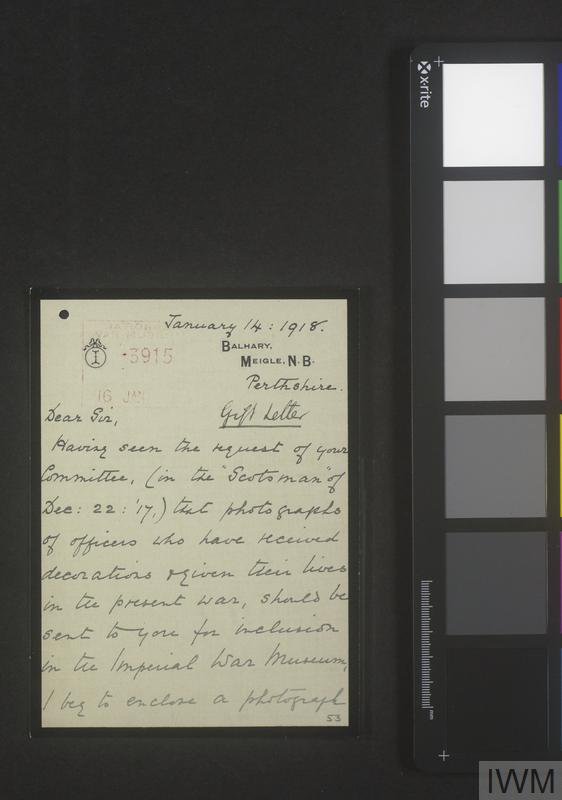 January 14 : 1918.
3915
BALHARY,
MEIGLE, N.B.
Perthshire.
16 JAN
Gift Letter
Dear Sir,
Having seen the request of your
Committee, (in the "Scotsman" of
Dec: 22 : '17,) that photographs
of officers who have received
decorations & given their lives
in the present war, should be
sent to you for inclusion
in the Imperial War Museum,
I beg to enclose a photograph
53
x-rite
mm
IWM